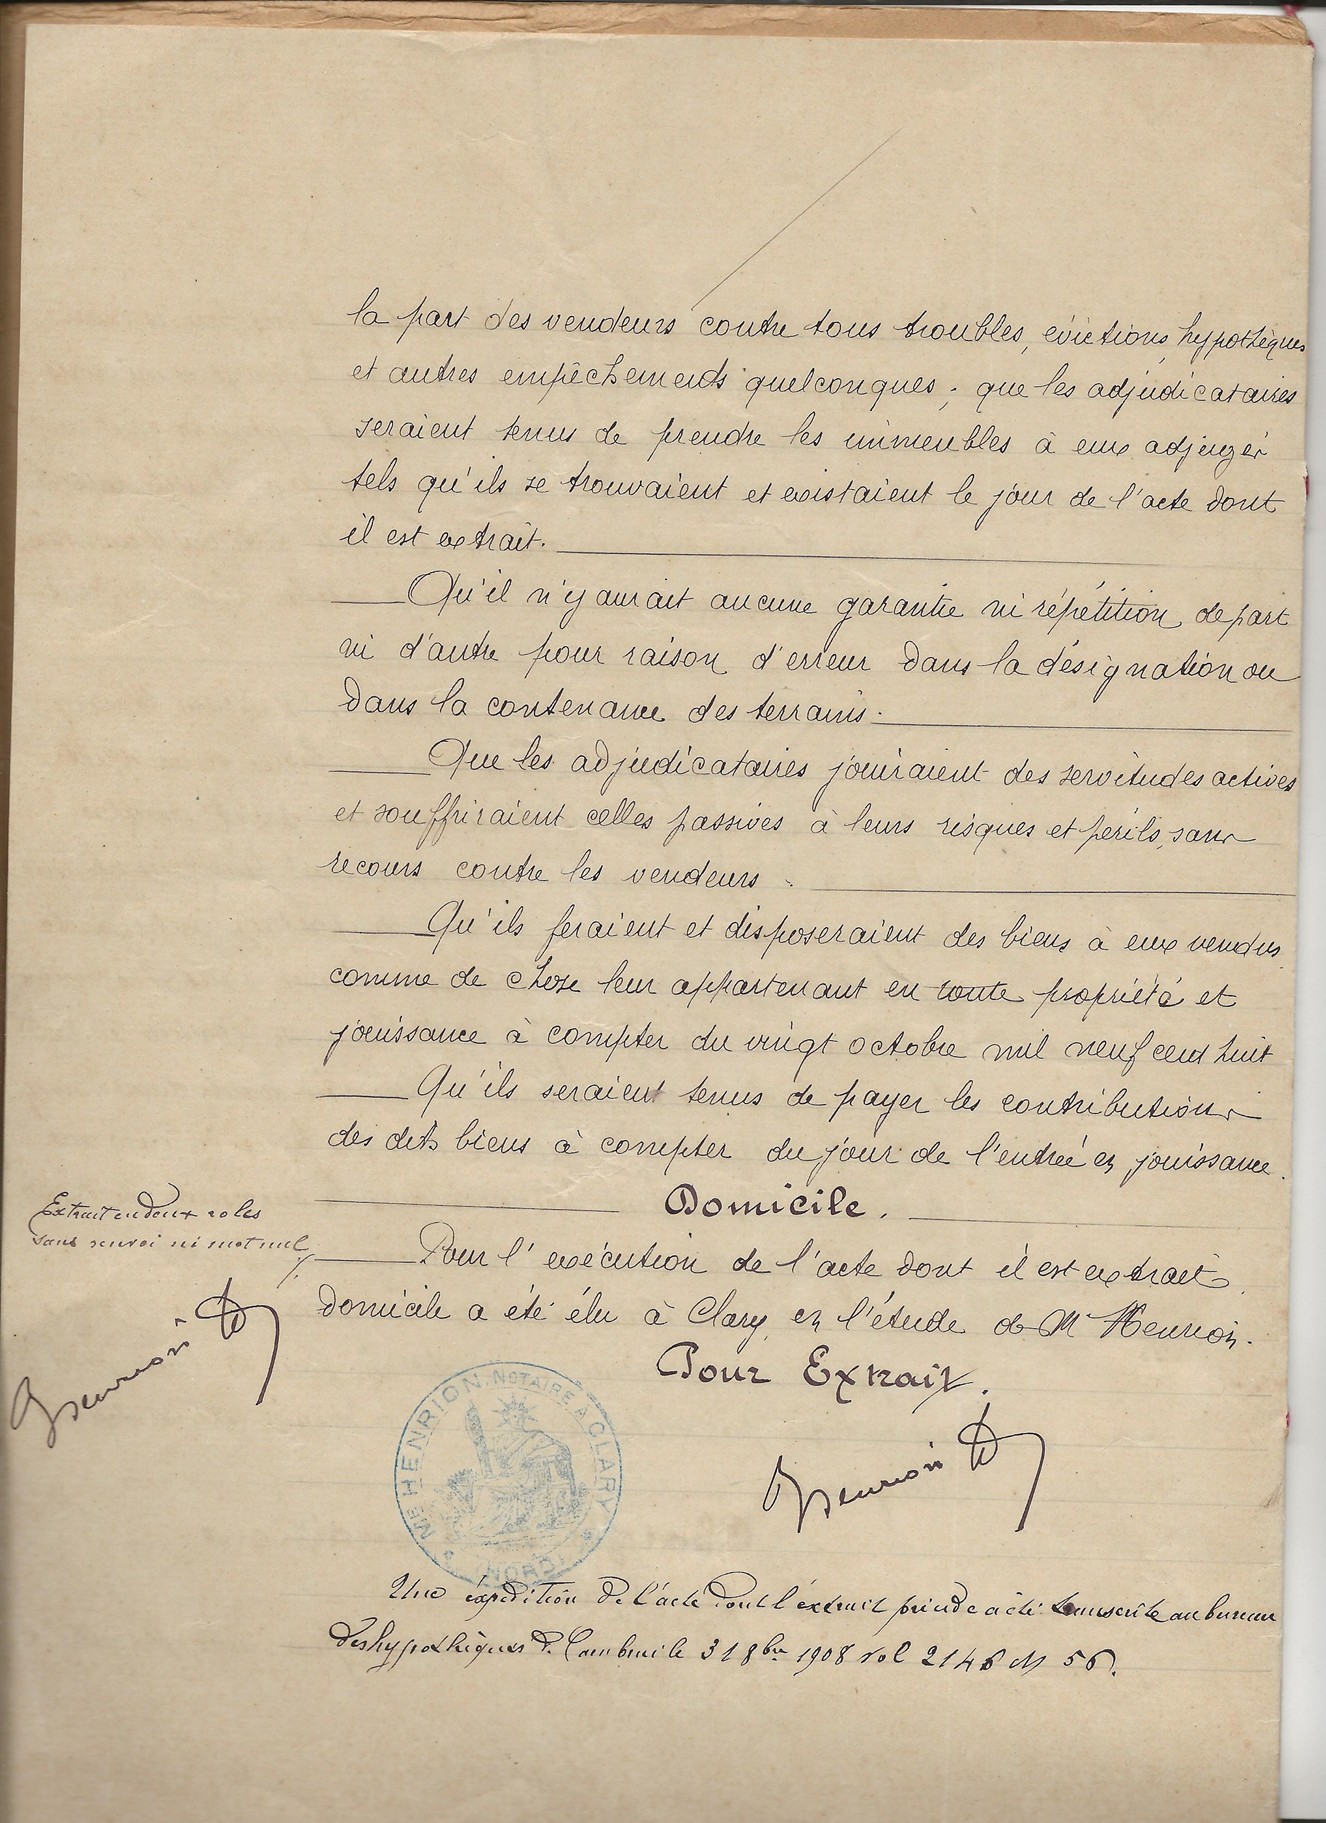 la part des vendeurs contre tous troubles, évictions, hypothèques
et autres empêchements quelconques ; que les adjudicataires
seraient tenus de prendre les immeubles à eux adjugés
tels qu'ils se trouvaient et existaient le jour de l'acte dont
il est extrait.
Qu'il n'y aurait aucune garantie ni répétition de part
ni d'autre pour raison d'erreur dans la désignation ou
dans la contenance des terrains.
Que les adjudicataires jouiraient des servitudes actives
et souffriraient celles passives à leurs risques et périls, sans
recours contre les vendeurs.
Qu'ils feraient et disposeraient des biens à eux vendus
comme de chose leur appartenant en toute propriété et
jouissance à compter du vingt octobre mil neuf cent huit
Qu'ils seraient tenus de payer les contributions
des dits biens à compter du jour de l'entrée en jouissance.
Domicile.
Pour l'exécution de l'acte dont il est extrait
domicile a été élu à Clary, en l'étude de Me Henrion.
Pour Extrait.
Extrait en deux roles
sans renvoi ni mot nul
Henrion
Henrion
ME HENRION NOTAIRE A CLARY
(NORD)
Une éxpédition de l'acte dont l'éxtrait précède a été transcrite au bureau
des hypothèques de Cambrai le 31 8bre 1908 vol 2146 N 56.